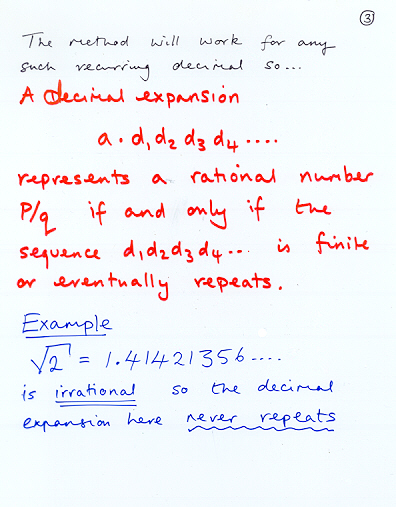 ③
The method will work for any
such recurring decimal so...
A decimal expansion
a . d₁ d₂ d₃ d₄ ....
represents a rational number
P/q if and only if the
sequence d₁d₂d₃d₄... is finite
or eventually repeats.
Example
√2 = 1.41421356....
is irrational so the decimal
expansion here never repeats